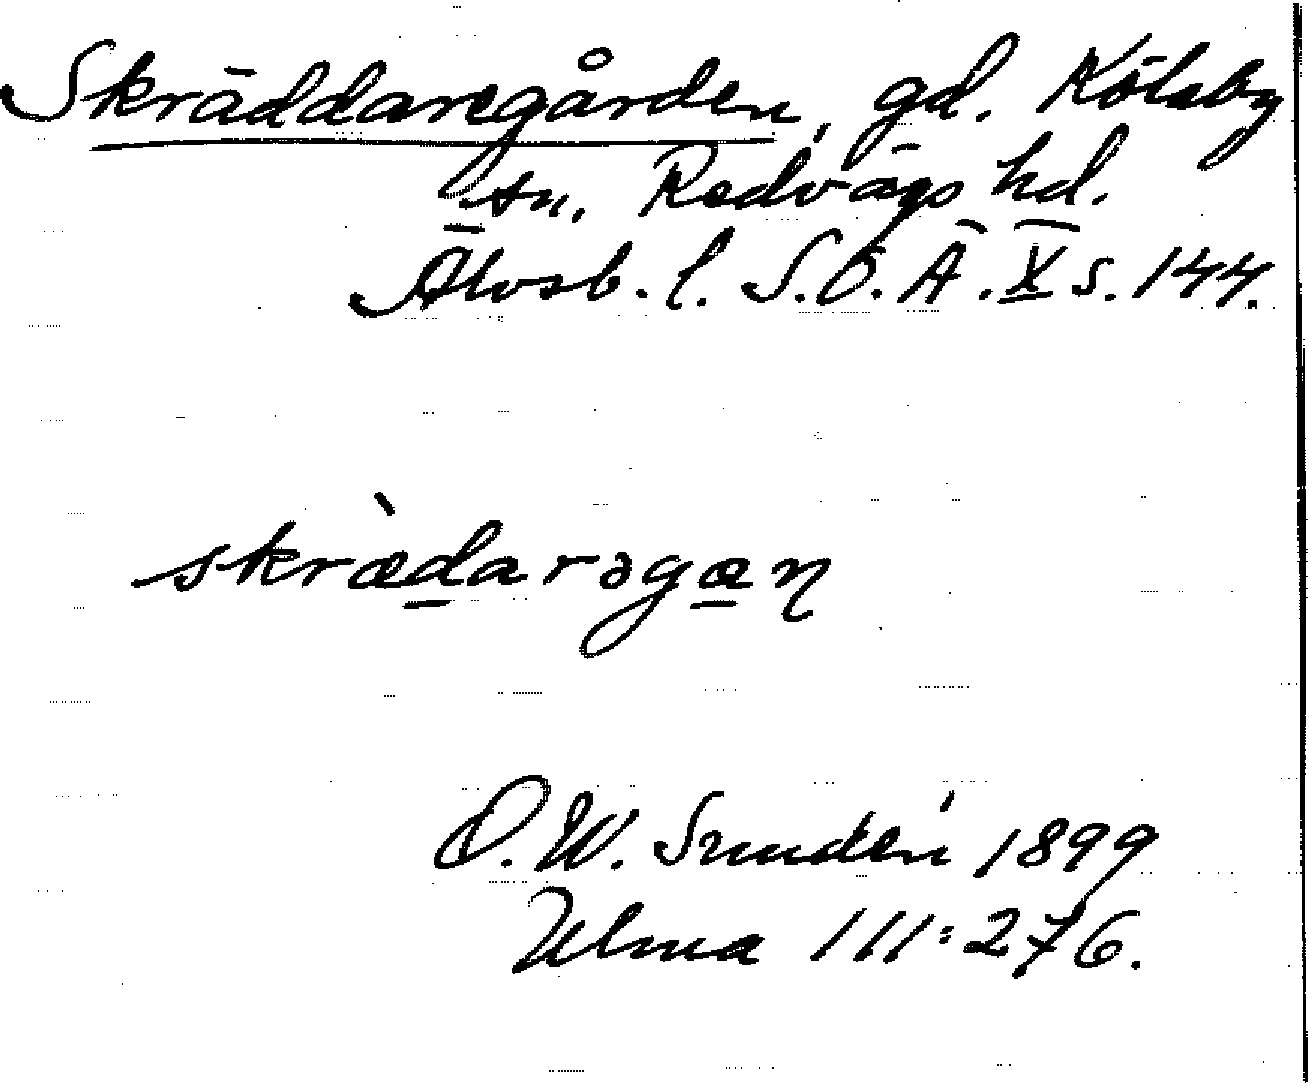 Skräddaregården, gd. Kölaby
sn. Redvägs hd.
Älvsb. l. S.O.Ä. X s. 144.
skrædarəgan
D. W. Sundén 1899
Ulma 111:276.